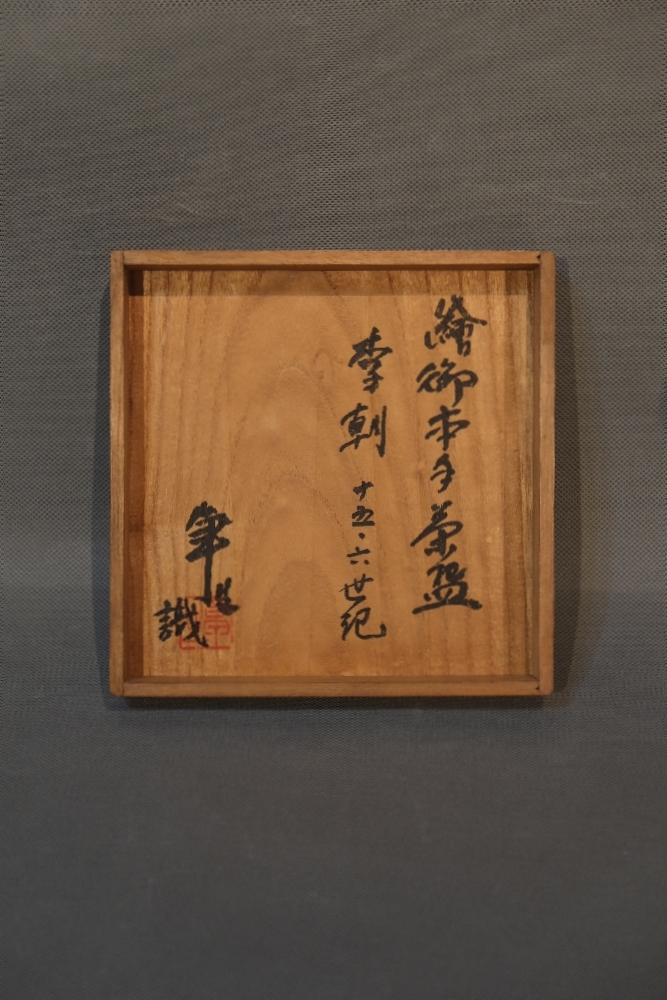 繪御本手茶盌
李朝
十五、六世紀
識